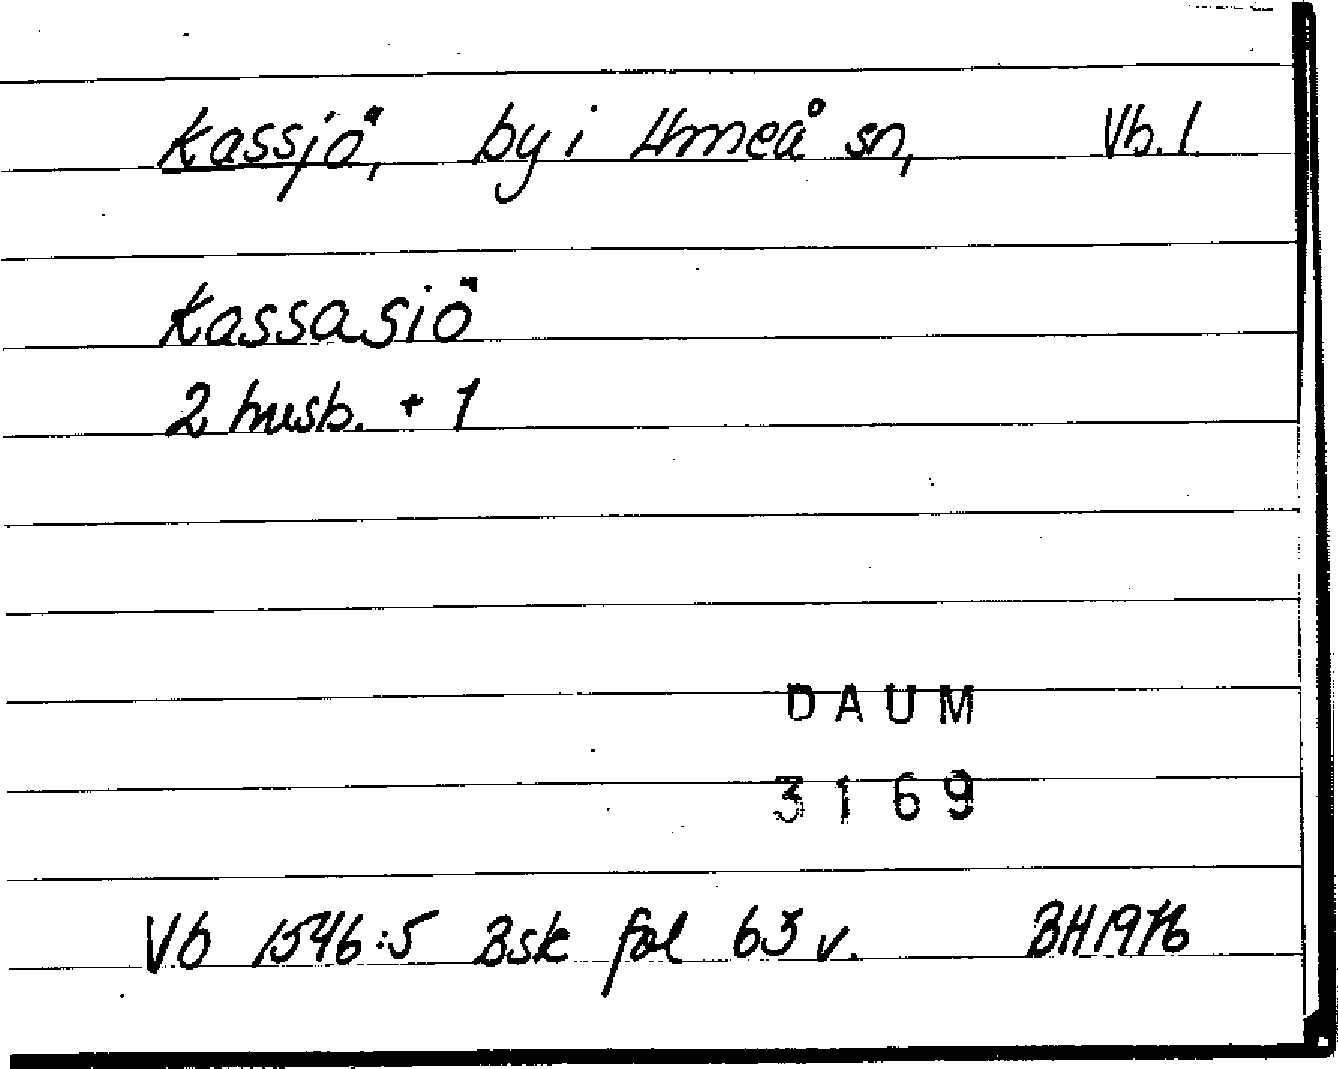 Kassjö, by i Umeå sn, Vb. l.
Kassasiö
2 husb. + 1
DAUM
3169
Vb 1546:5 Bsk fol 63 v. BH1976